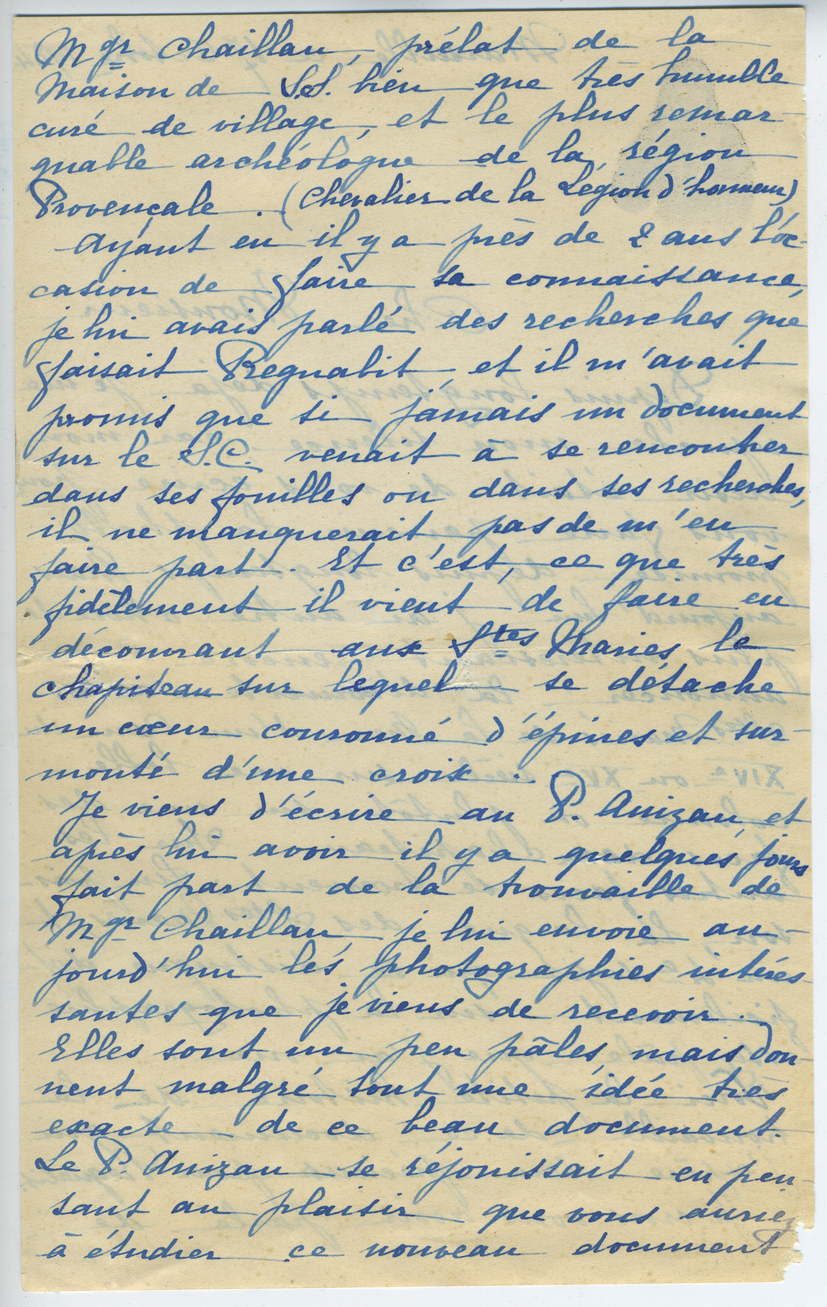 Mgr Chaillan, prélat de la
Maison de S.S. bien que très humble
curé de village, et le plus remar-
quable archéologue de la région
Provençale. (Chevalier de la Légion d'honneur)
Ayant eu il y a près de 2 ans l'oc-
casion de faire sa connaissance,
je lui avais parlé des recherches que
faisait Regnabit et il m'avait
promis que si jamais un document
sur le S.C. venait à se rencontrer
dans ses fouilles ou dans ses recherches,
il ne manquerait pas de m'en
faire part. Et c'est, ce que très
fidèlement il vient de faire en
découvrant aux Stes Maries le
chapiteau sur lequel se détache
un cœur couronné d'épines et sur-
monté d'une croix...
Je viens d'écrire au P. Anizan et
après lui avoir il y a quelques jours
fait part de la trouvaille de
Mgr Chaillan, je lui envoie au-
jourd'hui les photographies intéres-
santes que je viens de recevoir.
Elles sont un peu pâles, mais don-
nent malgré tout une idée très
exacte de ce beau document.
Le P. Anizan se réjouissait en pen-
sant au plaisir que vous auriez
à étudier ce nouveau document